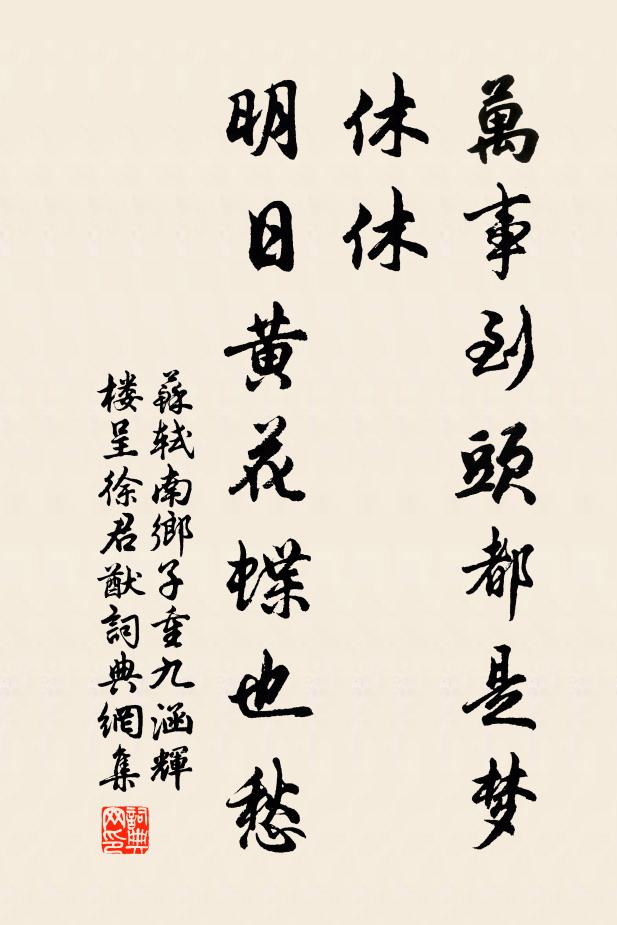 萬事到頭都是梦
休休
明日黄花蝶也愁
蘇軾南鄉子重九涵輝
楼呈徐君猷詞典網集
詞典
网印